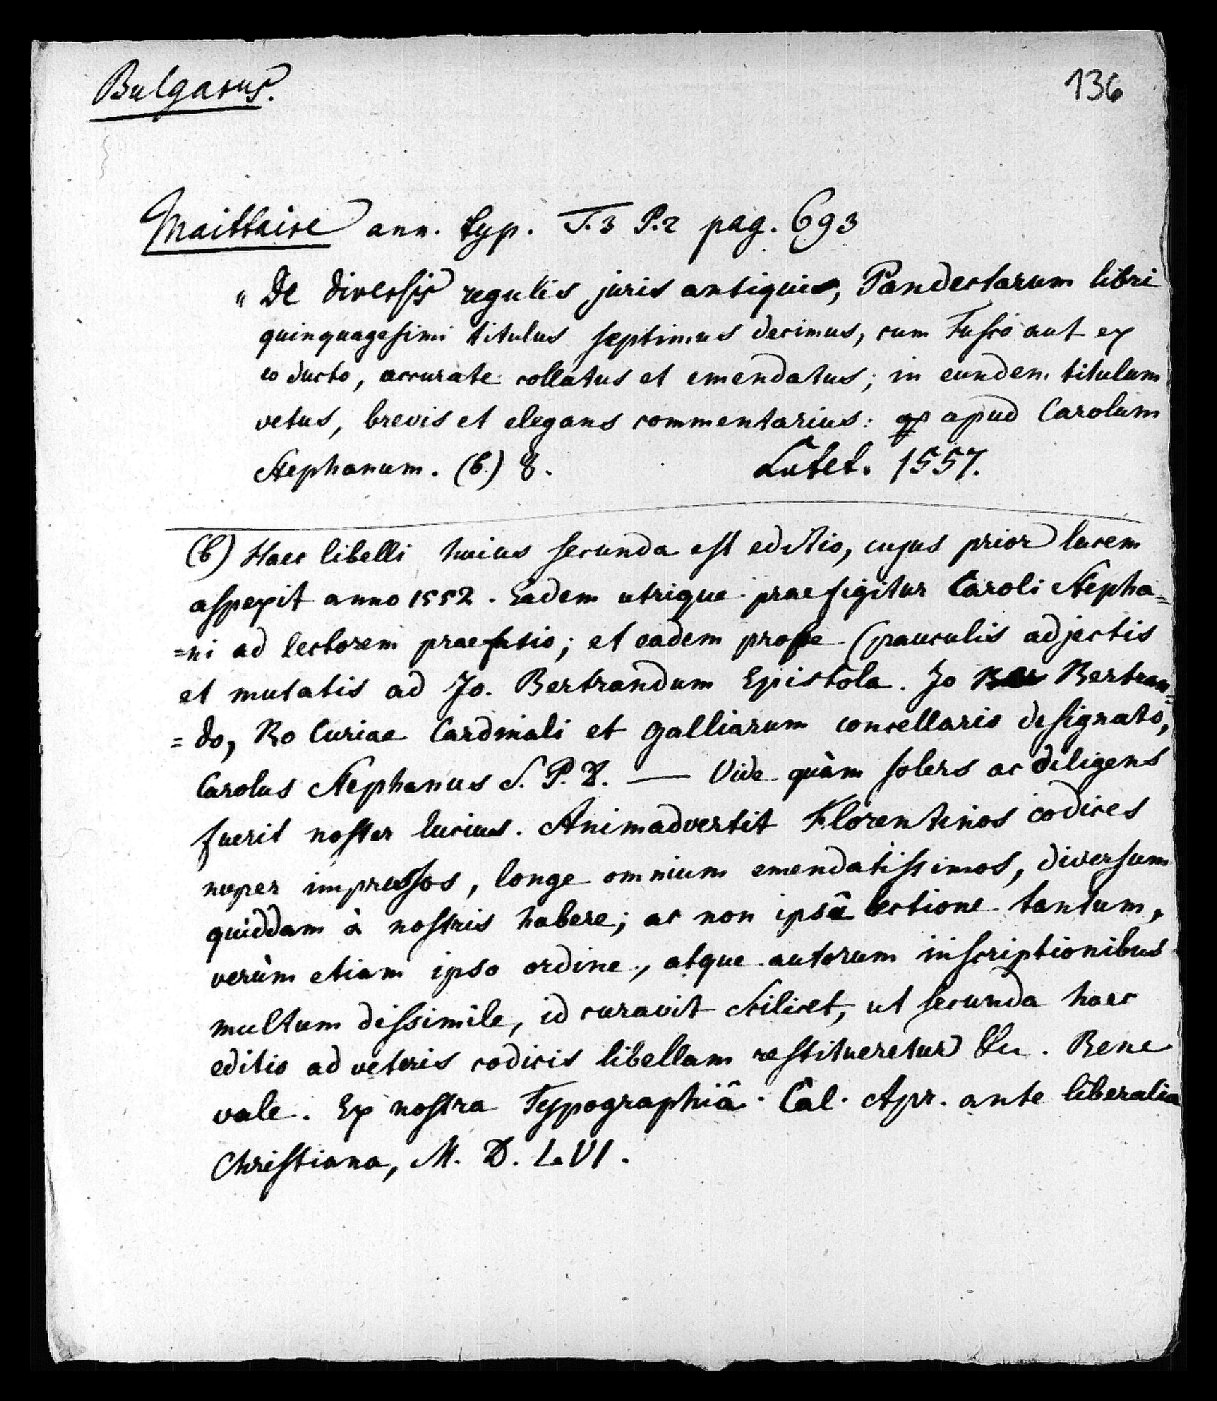 Bulgarus.
136
Maittaire ann. typ. T.3 P.2 pag. 693
„ De diversis regulis juris antiquis, Pandectarum libri
quinquagesimi titulus septimus decimus, cum Tusco aut ex
eo ducto, accurate collatus et emendatus; in eundem titulum
vetus, brevis et elegans commentarius: apud Carolum
Stephanum. (b.) 8. Lutet. 1557.
(b) Haec libelli huius secunda est editio, cujus prior lucem
aspexit anno 1552. Eadem utrique praefigitur Caroli Stepha=
=ni ad lectorem praefatio; et eadem prope (pauculis adjectis
et mutatis ad Jo. Bertrandum Epistola. Jo Bertran=
=do, Ro Curiae Cardinali et galliarum concellario designato,
Carolus Stephanus S. P. D. — Vide quàm solers ac diligens
fuerit noster lucius. Animadvertit Florentinos codices
nuper impressos, longe omnium emendatissimos, diversum
quiddam à nostris habere; ac non ipsâ lectione tantum,
verùm etiam ipso ordine, atque autorum inscriptionibus
multum dissimile, id curavit scilicet, ut secunda haec
editio ad veteris codicis libellam restitueretur &c. Bene
vale. Ex nostra Typographiâ. Câl. Apr. ante liberalia
Christiana, M. D. LVI.